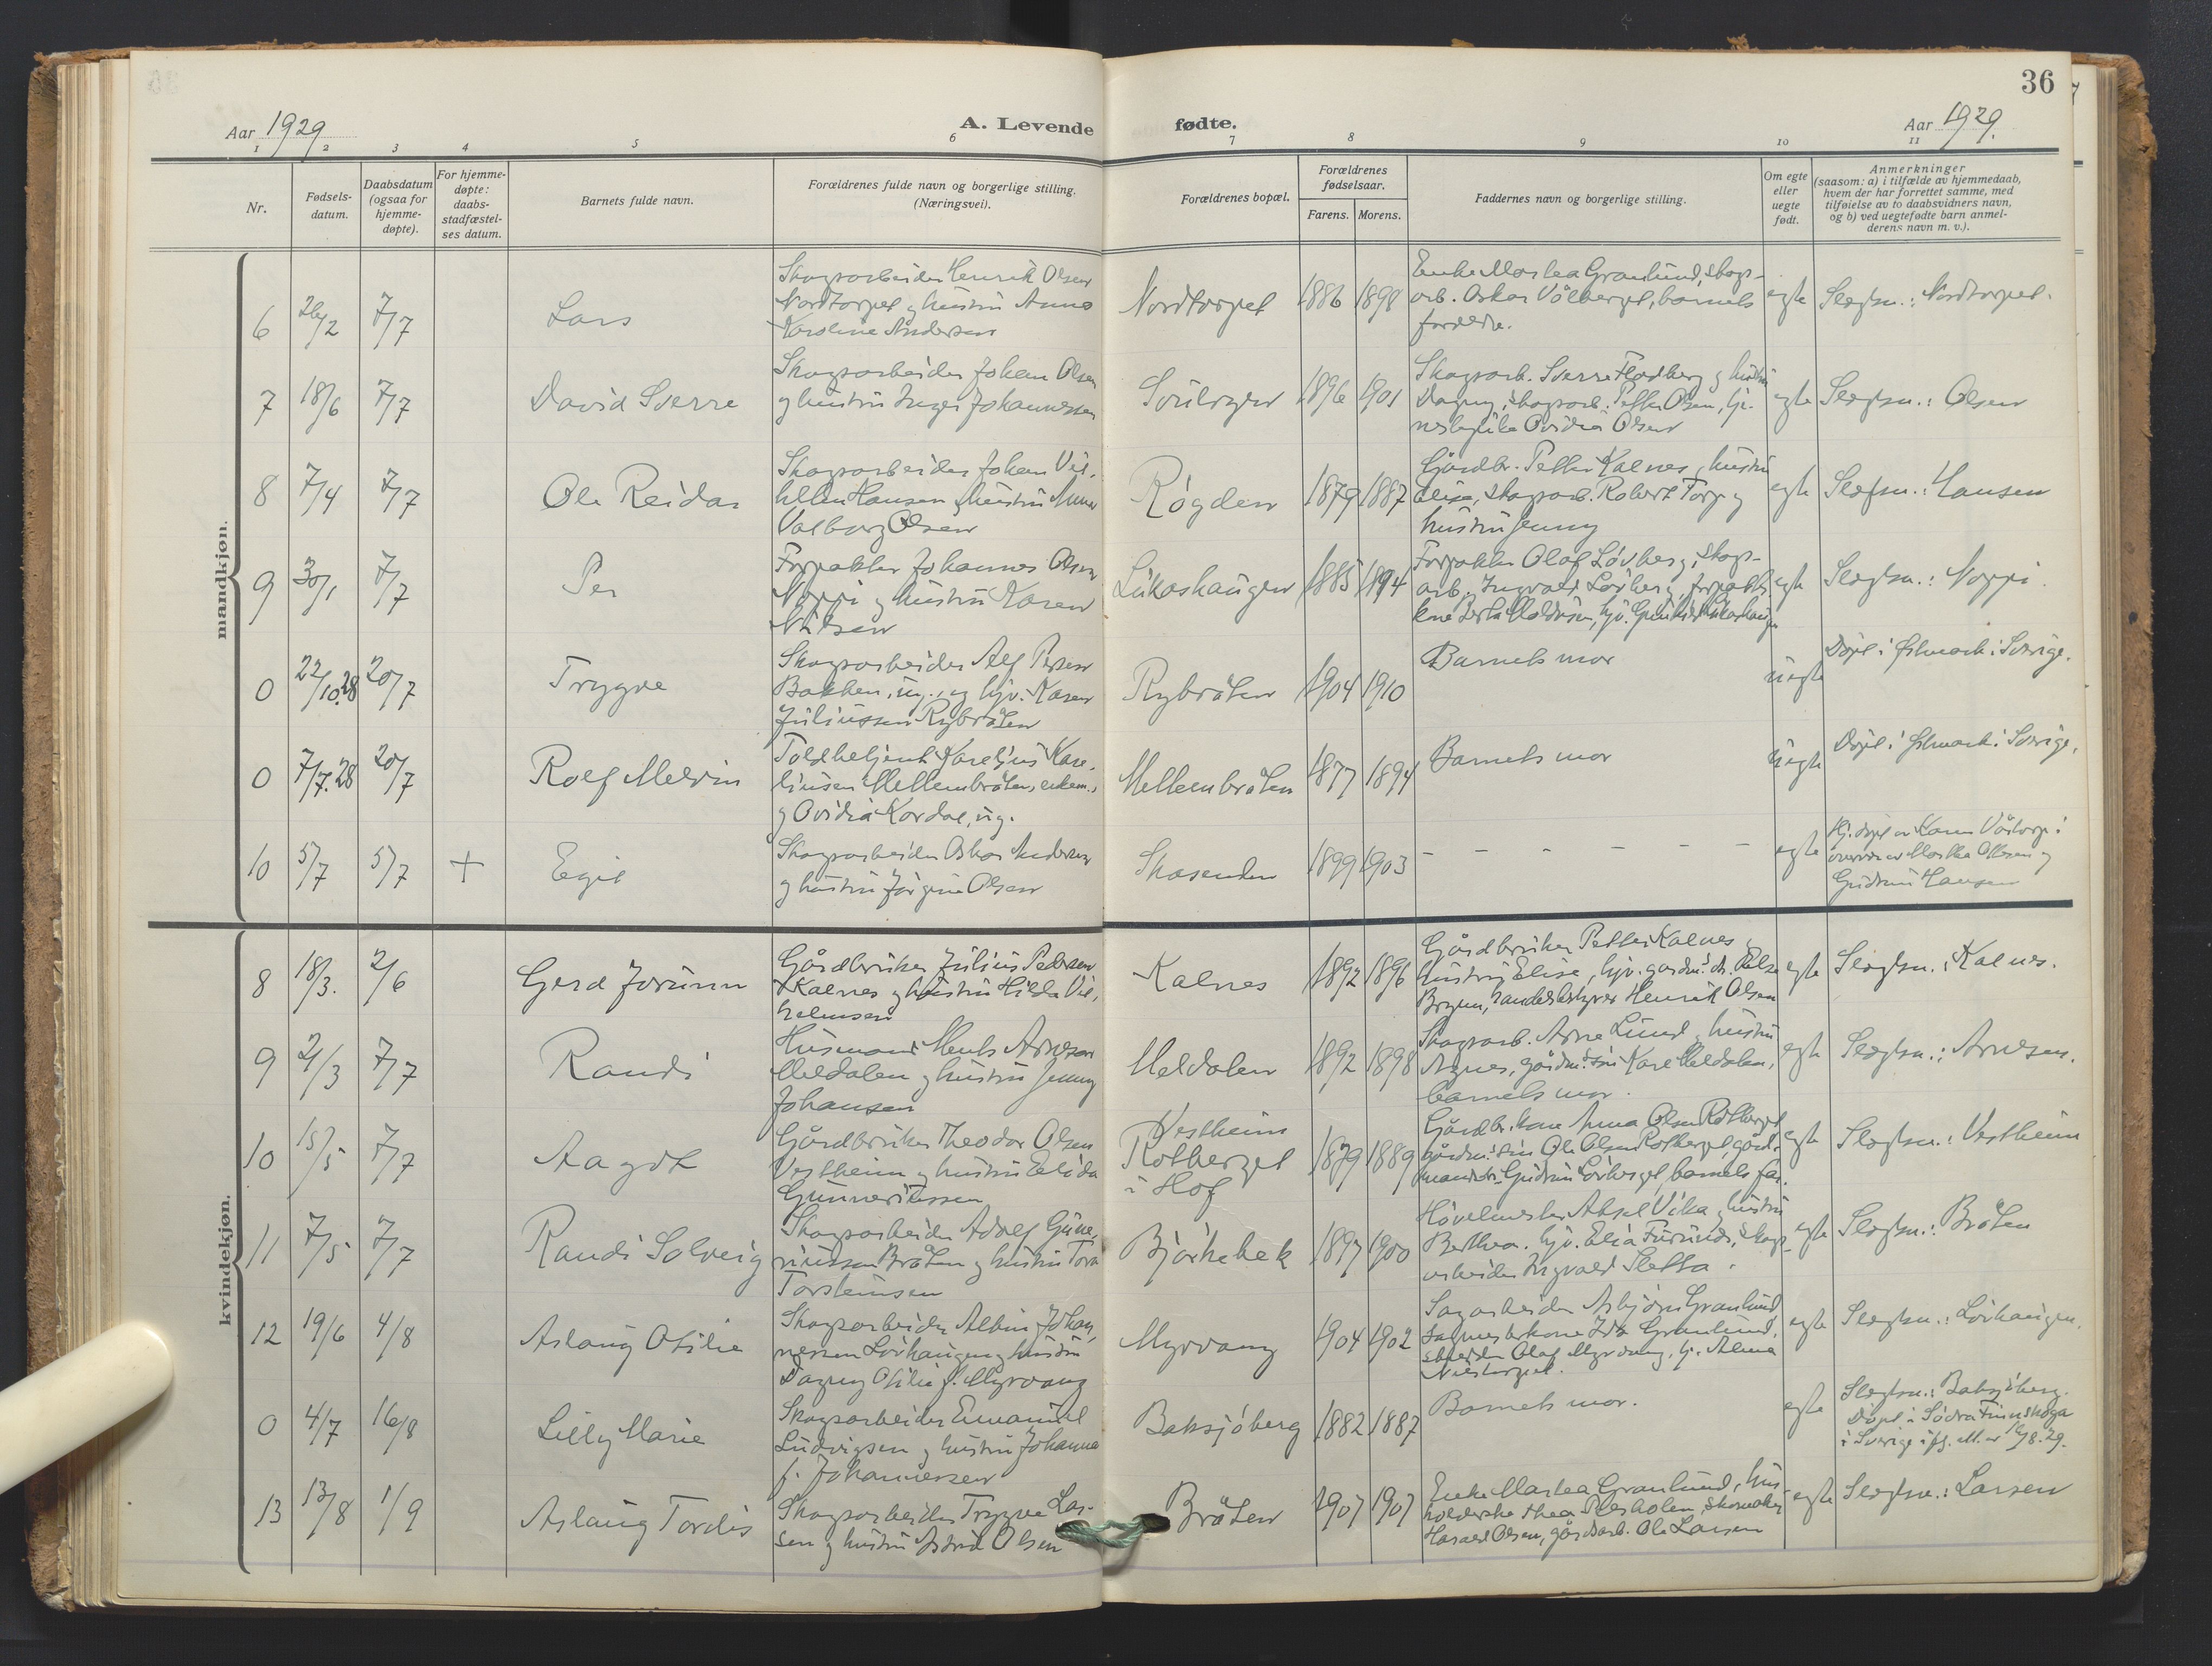 36
Aar 1929
A. Levende fødte.
Aar 1929.
1 2 3 4 5 6 7 8 9 10 11
Nr.
Fødsels-
datum.
Daabsdatum
(ogsaa for
hjemme-
døpte).
For hjemme-
døpte:
daabs-
stadfæstel-
ses datum.
Barnets fulde navn.
Forældrenes fulde navn og borgerlige stilling.
(Næringsvei).
Forældrenes bopæl.
Forældrenes
fødselsaar.
Farens. Morens.
Faddernes navn og borgerlige stilling.
Om egte
eller
uegte
født.
Anmerkninger
(saasom: a) i tilfælde av hjemmedaab,
hvem der har forrettet samme, med
tilføielse av to daabsvidners navn,
og b) ved uegtefødte barn anmel-
derens navn m. v.).
mandkjøn.
6 26/2 7/7 Lars
Skogsarbeider Henrik Olsen
Nordtorpet og hustru Anna
Karoline Andersen
Nordtorpet 1886 1898
Enke Martea Granlund, skogs-
arb. Oskar Vålberget, barnets
foreldre.
egte Slegtsn.: Nordtorpet.
7 18/6 7/7 David Sverre
Skogsarbeider Johan Olsen
og hustru Inger Johannessen
1896 1901
Skogsarb. Sverre Flodberg og hustru
Dagny, skogsarb. Petter Olsen, tje-
nestepike Ovidia Olsen
egte Slegtsn.: Olsen
8 7/4 7/7 Ole Reidar
Skogsarbeider Johan Vil-
helm Hansen og hustru Anna
Valborg Olsen
Røgden 1879 1887
Gårdbr. Petter Kalnes, hustru
Elise, skogsarb. Robert Torp og
hustru Jenny
egte Slegtsn.: Hansen
9 30/1 7/7 Per
Forpakter Johannes Olsen
Noppi og hustru Karen
Nilsen
Lukashaugen 1885 1894
Forpakter Olaf Løvberg, skogs-
arb. Ingvald Løvberg, forpakter-
egte Slegtsn.: Noppi.
0 22/10.28 20/7 Trygve
Skogsarbeider Alf Persen
Bakken, ug., og hjv. Karen
Juliussen Rybråten
Rybråten 1904 1910
Barnets mor
uegte Døpt i Østmark i Sverige.
0 7/7.28 20/7 Rolf Melvin
Toldbetjent Karelius Kare-
liusen Mellembråten, enkem.,
og Ovidia Kordal, ug.
Mellembråten 1877 1894
Barnets mor
uegte Døpt i Østmark i Sverige.
10 5/7 5/7 + Egil
Skogsarbeider Oskar Andersen
og hustru Jørgine Olsen
Skasenden 1899 1903
- - - - - -
egte Hj. døpt av Karen Våtorp i
overvær av Martha Olsen og
Gudrun Hansen
kvindekjøn.
8 18/3. 2/6 Gerd Jorunn
Gårdbruker Julius Pedersen
Kalnes og hustru Hilda Vil-
helmsen
Kalnes 1892 1896
Gårdbruker Petter Kalnes,
hustru Elise, hjv. gårdm. dt.
handelsbestyrer Henrik Olsen
egte Slegtsn.: Kalnes.
9 21/3 7/7 Randi
Husmand Ments Arnesen
Meldalen og hustru Jenny
Johansen
Meldalen 1892 1898
Skogsarb. Arne Lund og hustru
Agnes, gårdm. søn Kåre Meldalen,
barnets mor.
egte Slegtsn.: Arnesen.
10 15/5 7/7 Aagot
Gårdbruker Theodor Olsen
Vestheim og hustru Elida
Gunneriussen
Vestheim
Rotberget
i Hof
1879 1889
Gårdbr. kone Anna Olsen Rotberget
gårdm. søn Ole Olsen Rotberget, gård-
mandsdt. Gudrun Løvberget, barnets far.
egte Slegtsn.: Vestheim
11 7/5 7/7 Randi Solveig
Skogsarbeider Adolf Gune-
riussen Bråten og hustru Tora
Torsteinsen
Bjørkebek 1897 1900
Høvelmester Aksel Vika og hustru
Berthea. hjv. Elia Furunds, skogs-
arbeider Ingvald Sletta.
egte Slegtsn.: Bråten
12 19/6 4/8 Aslaug Otilie
Skogsarbeider Albin Johan-
nessen Løvhaugen og hustru
Dagny Otilie f. Myrvang
Myrvang 1904 1902
Sagarbeider Asbjørn Granlund
sagmesterkone Ida Granlund,
Olaf Myrvang, tj. Alma
egte Slegtsn.: Løvhaugen.
0 4/7 16/8 Lilly Marie
Skogsarbeider Emanuel
Ludvigsen og hustru Johanna
f. Johannessen
Baksjøberg 1882 1887
Barnets mor.
egte Slegtsn.: Baksjøberg.
Døpt i Södra Finnskoga
i Sverige ifg. M. av 16/8.29.
13 13/8 1/9 Aslaug Tordis
Skogsarbeider Trygve Lar-
sen og hustru Astrid Olsen
Bråten 1907 1907
Enke Martea Granlund, hus-
holderske Thea skomaker
Harald Olsen, gårdsarb. Ole Larsen
egte Slegtsn.: Larsen